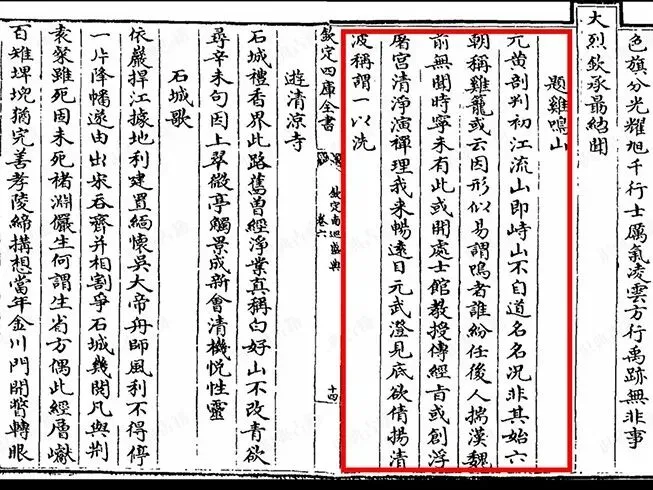 色旗分光耀旭千行士厲氣凌雲方行禹跡無非事
大烈欽承昜絶聞
題雞鳴山
元黄剖判初江流山即峙山不自道名名况非其始六
朝稱雞籠或云因形似易謂鳴者誰紛任後人揣漢魏
前無聞時寧未有此或開處士館教授傳經旨或創浮
屠宫清淨演禪理我来暢遠目元武澄見底欲倩揚清
波稱謂一以洗
欽定四庫全書
欽定南巡盛典
卷六
十四
遊清凉寺
石城禮香界此路舊曾經淨業真稱白好山不改青欲
尋辛未句因上翠微亭觸景成新會清機悦性靈
石城歌
依巖捍江據地利建置緬懷吳大帝舟師風利不得停
一片降幡遂由出宋吞齊并相割爭石城幾閲凡與判
袁粲雖死固未死褚淵儼生何謂生省方偶此經層巘
百雉埤堄猶完善孝陵締搆想當年金川門開瞥轉眼